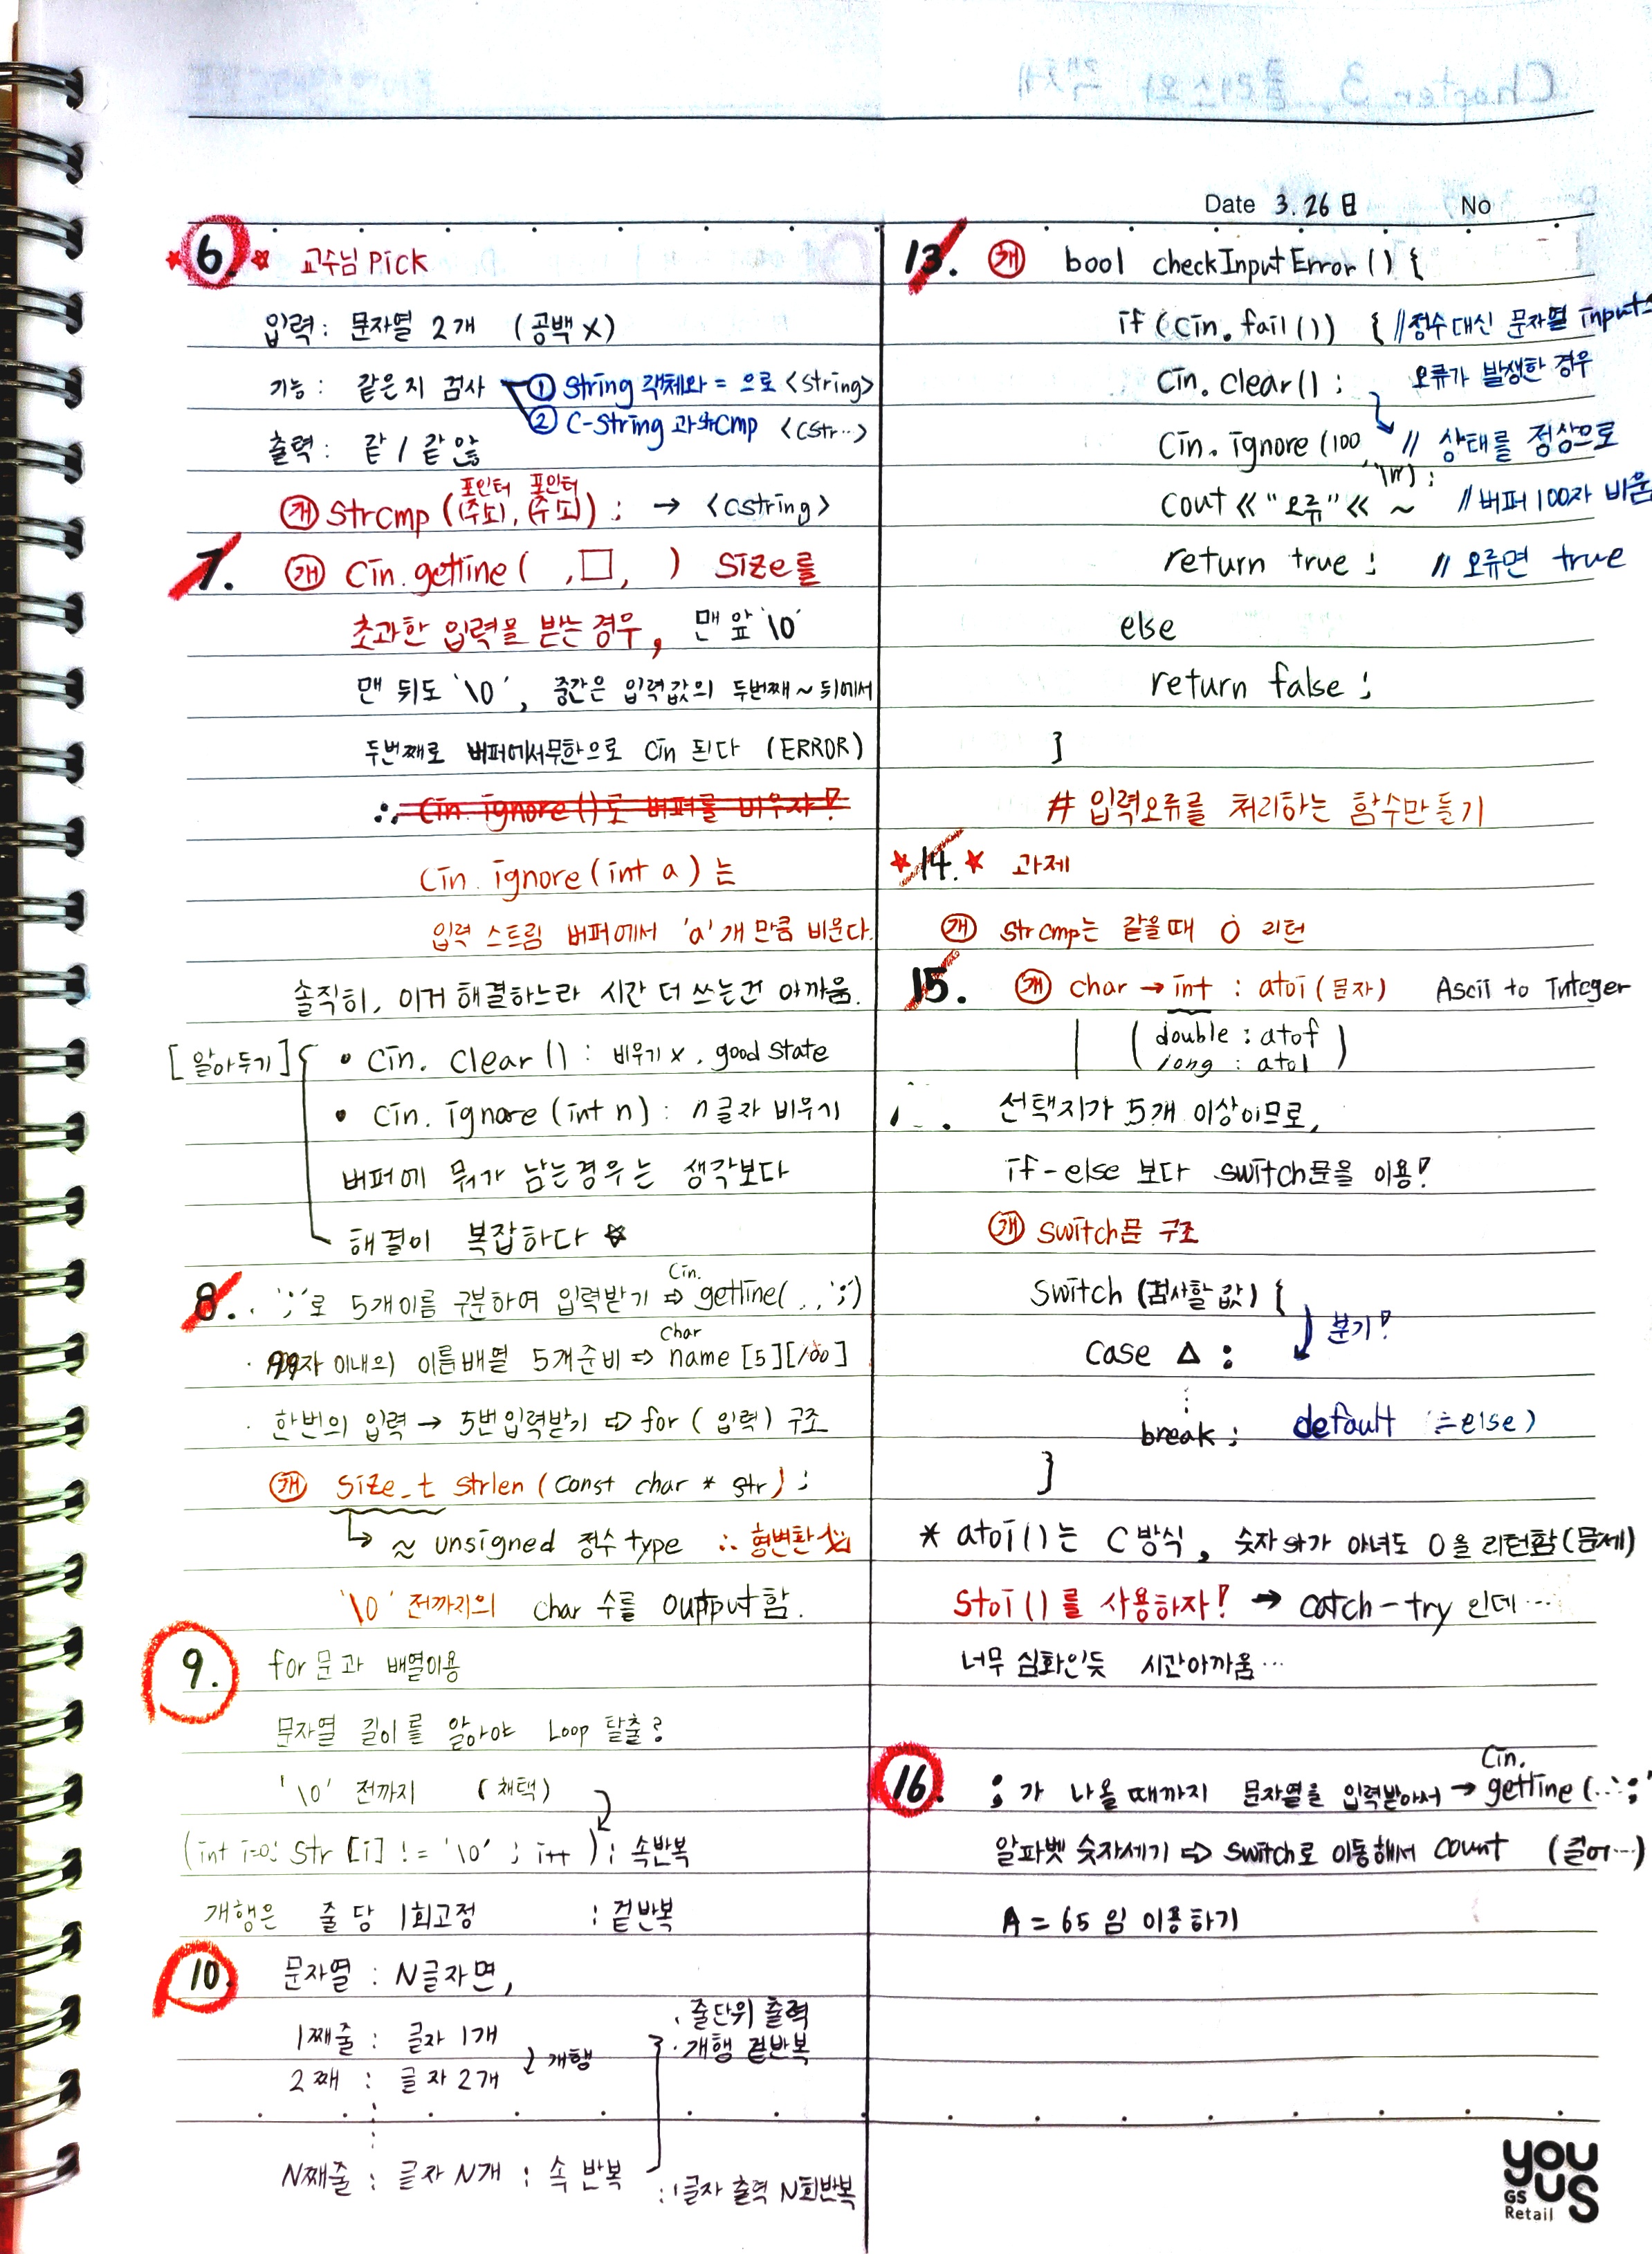 Chapter 3. 클래스와 객체
Date 3. 26 日 No
6. 교수님 Pick
입력: 문자열 2개 (공백 X)
기능: 같은지 검사 ① String 객체와 = 으로 <string>
② C-String 과 strcmp <cstr..>
출력: 같 / 같 않
포인터 포인터
개 Strcmp (주소), (주소) ; → <cstring>
7. 개 Cin.getline( ,□, ) Size를
초과한 입력을 받는 경우, 맨 앞 '\0'
맨 뒤도 '\0', 중간은 입력값의 두번째 ~ 뒤에서
두번째로 버퍼에서무한으로 Cin 된다 (ERROR)
∴ Cin. ignore()로 버퍼를 비우자!
Cin. ignore(int a)는
입력 스트림 버퍼에서 'a'개 만큼 비운다.
솔직히, 이거 해결하느라 시간 더 쓰는건 아까움.
[알아두기] • Cin. Clear() : 비우기 x, good state
• Cin. ignore (int n) : n글자 비우기
버퍼에 뭐가 남는경우는 생각보다
해결이 복잡하다 ☆
Cin.
8. . ';'로 5개이름 구분하여 입력받기 ⇨ getline( , , ';')
Char
· 99자 이내의 이름배열 5개준비 ⇨ name [5][100]
· 한번의 입력 → 5번입력받기 ⇨ for (입력) 구조
개 Size_t strlen (const char * str) ;
↳ ≈ unsigned 정수 type ∴ 형변환
'\0' 전까지의 char 수를 output 함.
9. for문과 배열이용
문자열 길이를 알아야 Loop 탈출?
'\0' 전까지 (채택)
(int i=0; Str [i] != '\0' ; i++) : 속반복
개행은 줄 당 1회고정 : 겉반복
10. 문자열 : N글자면,
1째줄 : 글자 1개
2째 : 글자 2개 개행
· 줄단위 출력
· 개행 겉반복
N째줄 : 글자 N개 : 속 반복
: 1글자 출력 N회반복
13. 개 bool checkInputError() {
if (cin.fail()) { //정수대신 문자열 input
Cin. clear() ; 오류가 발생한 경우
Cin. ignore (100, '\n') ; // 상태를 정상으로
cout << "오류" << ~ //버퍼 100자 비움
return true ; // 오류면 true
else
return false ;
}
# 입력오류를 처리하는 함수만들기
14. 과제
개 strcmp는 같을때 0 리턴
15. 개 char → int : atoi (문자) Ascii to Integer
(double : atof
long : atol)
∴ 선택지가 5개 이상이므로,
if-else 보다 switch문을 이용!
개 switch문 구조
Switch (검사할 값) {
분기!
Case △ :
break ; default (=else)
}
* atoi()는 C 방식, 숫자 가 아녀도 0을 리턴함(문제)
Stoi()를 사용하자! → catch-try 인데 ...
너무 심화인듯 시간아까움 ...
Cin.
16. ;가 나올 때까지 문자열을 입력받아서 → getline(..';'
알파벳 숫자세기 ⇨ Switch로 이동해서 Count (길어...)
A = 65 임 이용하기
YOU US
GS Retail